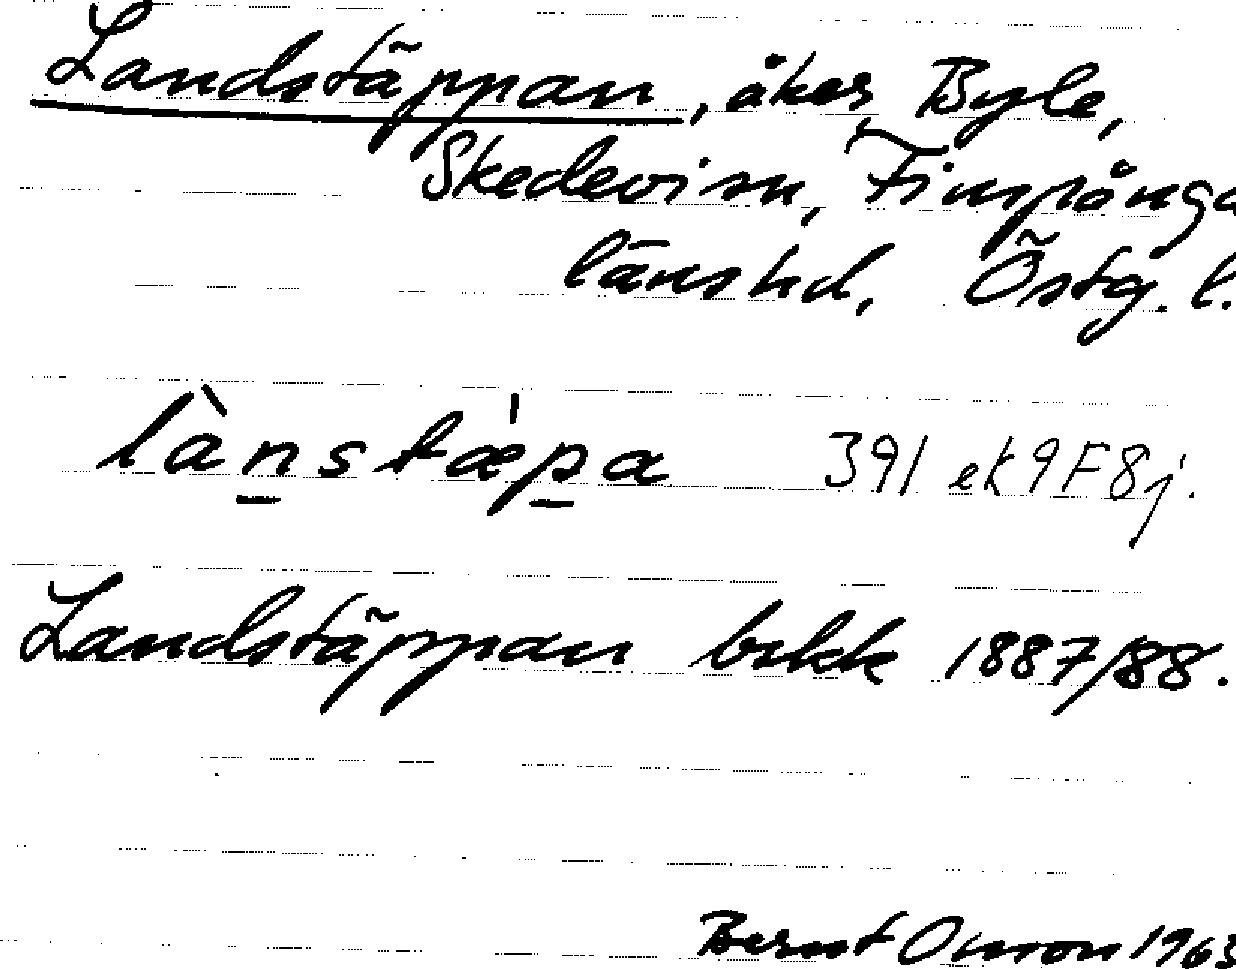 Landstäppan, åker, Byle,
Skedevi sn, Finspånga
länshd, Östg. l.
lànstæ̍pa 391 ek 9F8j.
Landstäppan bskk 1887/88.
Bernt Olsson 1963